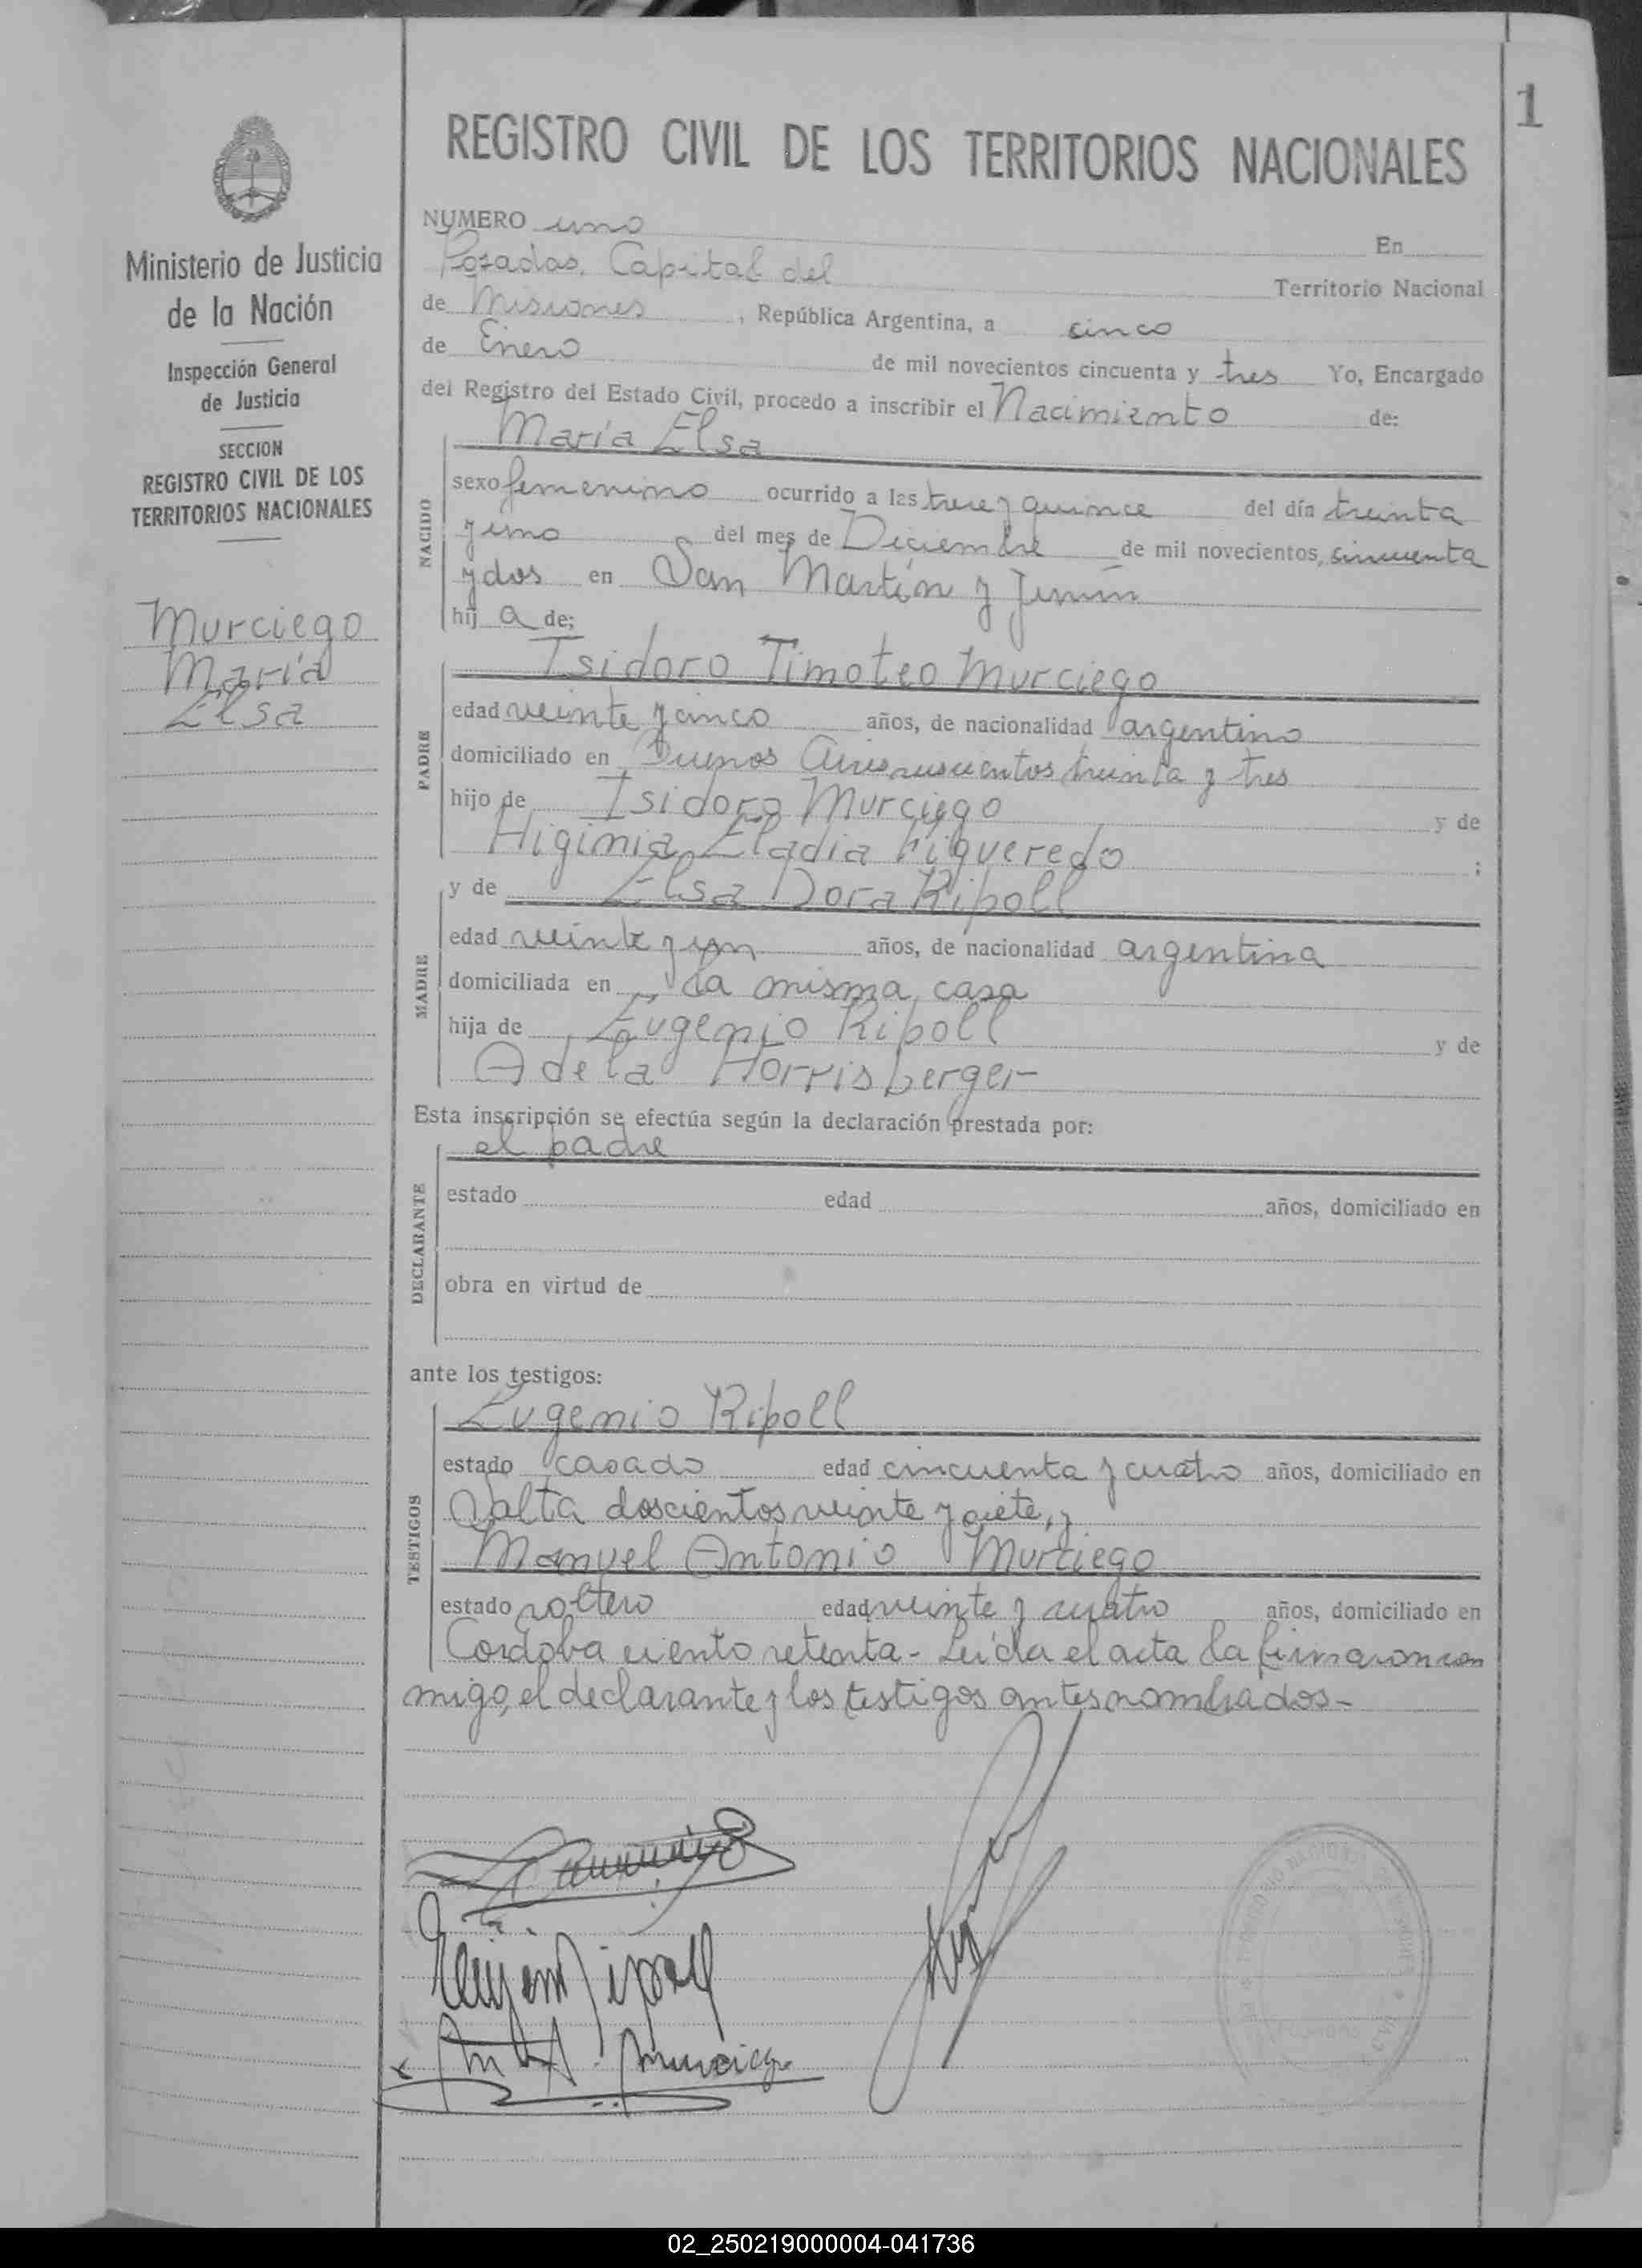 1
REGISTRO CIVIL DE LOS TERRITORIOS NACIONALES
Ministerio de Justicia
de la Nación
Inspección General
de Justicia
SECCION
REGISTRO CIVIL DE LOS
TERRITORIOS NACIONALES
Murciego
María
Elsa
NUMERO uno En
Posadas, Capital del Territorio Nacional
de Misiones, República Argentina, a cinco
de Enero de mil novecientos cincuenta y tres Yo, Encargado
del Registro del Estado Civil, procedo a inscribir el Nacimiento de:
María Elsa
NACIDO
sexo femenino ocurrido a las trece y quince del día treinta
y uno del mes de Diciembre de mil novecientos, cincuenta
y dos en San Martín y Junín
hij a de:
Isidoro Timoteo Murciego
PADRE
edad veinte y cinco años, de nacionalidad argentino
domiciliado en Buenos Aires seiscientos treinta y tres
hijo de Isidoro Murciego y de
Higinia Eladia Figueredo ;
y de Elsa Dora Ripoll
MADRE
edad veinte y un años, de nacionalidad argentina
domiciliada en la misma casa
hija de Eugenio Ripoll y de
Adela Horrisberger
Esta inscripción se efectúa según la declaración prestada por:
el padre
DECLARANTE
estado edad años, domiciliado en
obra en virtud de
ante los testigos:
Eugenio Ripoll
TESTIGOS
estado casado edad cincuenta y cuatro años, domiciliado en
Salta doscientos veinte y siete, y
Manuel Antonio Murciego
estado soltero edad veinte y cuatro años, domiciliado en
Cordoba ciento setenta - Leída el acta la firmaron con
migo, el declarante y los testigos antes nombrados -
Eugenio Ripoll
Murciego
02_250219000004-041736